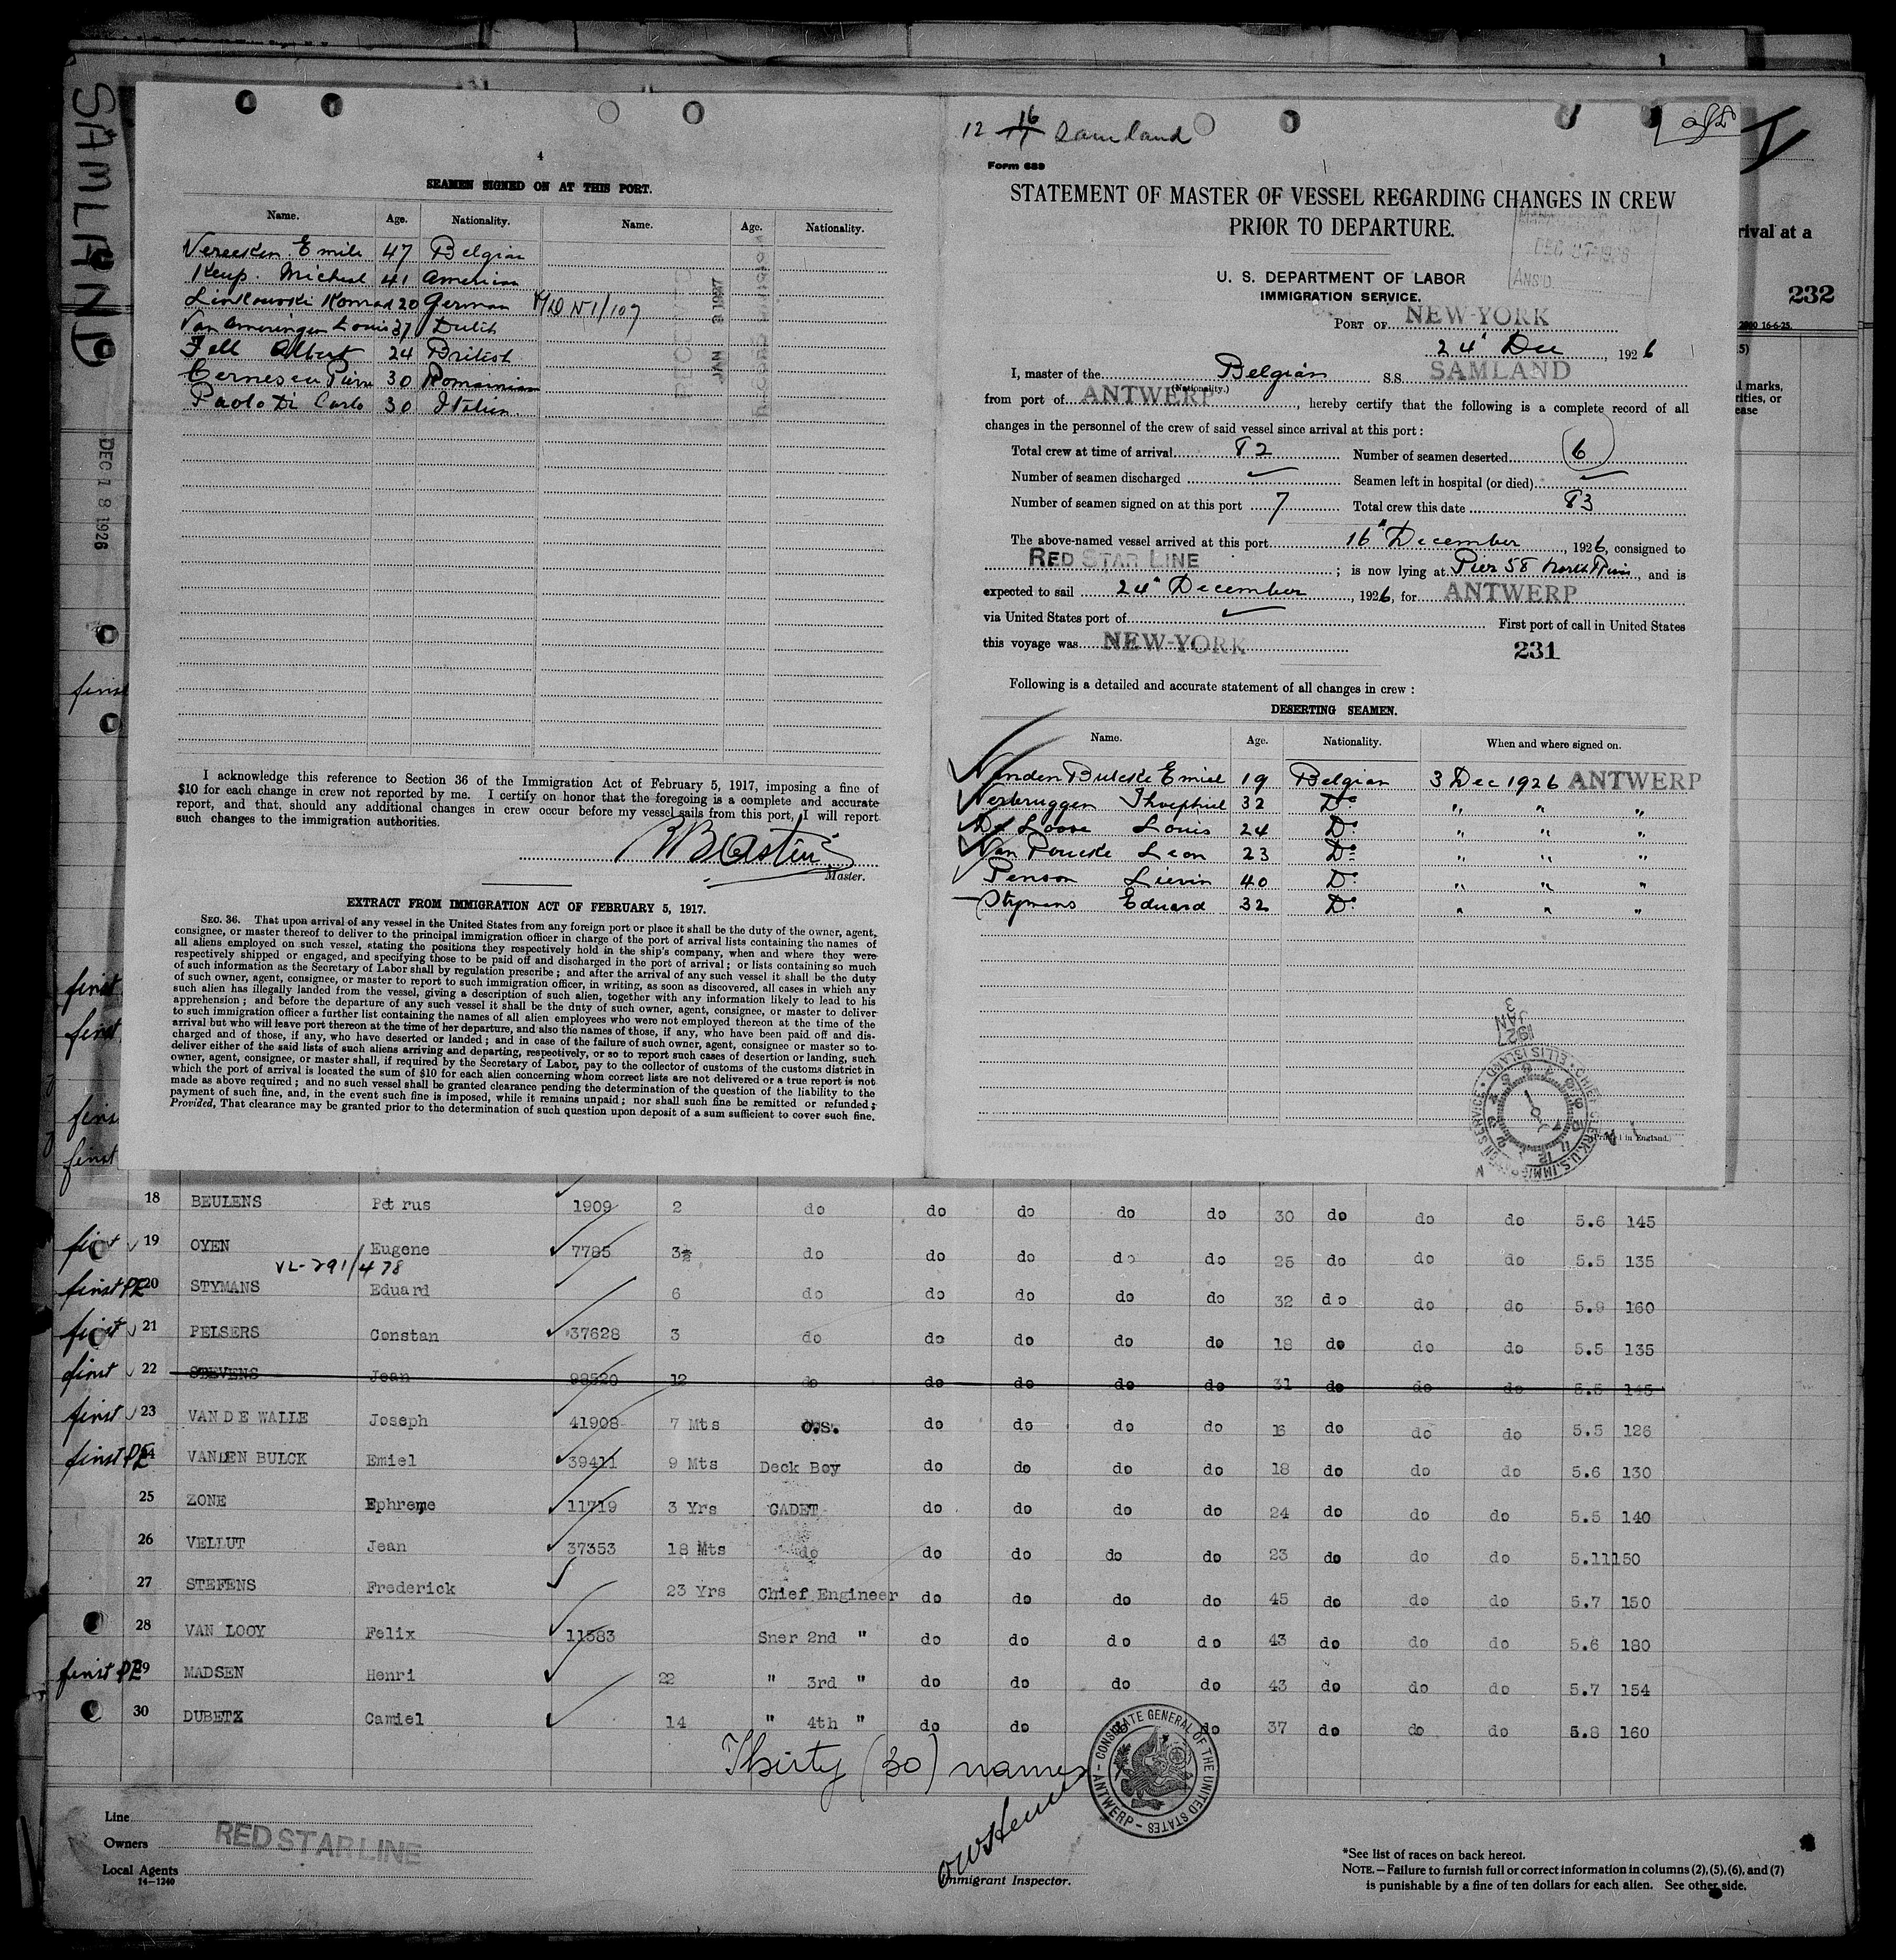 SAMLAND
DEC 18 1926
4
SEAMEN SIGNED ON AT THIS PORT.
Name. Age. Nationality. Name. Age. Nationality.
Vereeken Emile 47 Belgian
Keup. Michael 41 American
Linkowski Konrad 20 German
Van Ameringen Louis 37 Dutch
Fell Albert 24 British
Cernescu Pierre 30 Romainian
Paolo Di Carlo 30 Italian.
RECEIVED
JAN 3 1927
I acknowledge this reference to Section 36 of the Immigration Act of February 5, 1917, imposing a fine of
$10 for each change in crew not reported by me. I certify on honor that the foregoing is a complete and accurate
report, and that, should any additional changes in crew occur before my vessel sails from this port, I will report
such changes to the immigration authorities.
Master.
EXTRACT FROM IMMIGRATION ACT OF FEBRUARY 5, 1917.
SEC. 36. That upon arrival of any vessel in the United States from any foreign port or place it shall be the duty of the owner, agent,
consignee, or master thereof to deliver to the principal immigration officer in charge of the port of arrival lists containing the names of
all aliens employed on such vessel, stating the positions they respectively hold in the ship's company, when and where they were
respectively shipped or engaged, and specifying those to be paid off and discharged in the port of arrival; or lists containing so much
of such information as the Secretary of Labor shall by regulation prescribe; and after the arrival of any such vessel it shall be the duty
of such owner, agent, consignee, or master to report to such immigration officer, in writing, as soon as discovered, all cases in which any
such alien has illegally landed from the vessel, giving a description of such alien, together with any information likely to lead to his
apprehension; and before the departure of any such vessel it shall be the duty of such owner, agent, consignee, or master to deliver
to such immigration officer a further list containing the names of all alien employees who were not employed thereon at the time of the
arrival but who will leave port thereon at the time of her departure, and also the names of those, if any, who have been paid off and dis-
charged and of those, if any, who have deserted or landed; and in case of the failure of such owner, agent, consignee or master so to
deliver either of the said lists of such aliens arriving and departing, respectively, or so to report such cases of desertion or landing, such
owner, agent, consignee, or master shall, if required by the Secretary of Labor, pay to the collector of customs of the customs district in
which the port of arrival is located the sum of $10 for each alien concerning whom correct lists are not delivered or a true report is not
made as above required; and no such vessel shall be granted clearance pending the determination of the question of the liability to the
payment of such fine, and, in the event such fine is imposed, while it remains unpaid; nor shall such fine be remitted or refunded:
Provided, That clearance may be granted prior to the determination of such question upon deposit of a sum sufficient to cover such fine.
12 16 Samland
Form 689
STATEMENT OF MASTER OF VESSEL REGARDING CHANGES IN CREW
PRIOR TO DEPARTURE.
DEC 27 1926
ANS'D
U. S. DEPARTMENT OF LABOR
IMMIGRATION SERVICE.
PORT OF NEW-YORK
24" Dec, 1926
I, master of the Belgian S.S. SAMLAND
(Nationality.)
from port of ANTWERP, hereby certify that the following is a complete record of all
changes in the personnel of the crew of said vessel since arrival at this port:
Total crew at time of arrival 82 Number of seamen deserted 6
Number of seamen discharged Seamen left in hospital (or died)
Number of seamen signed on at this port 7 Total crew this date 83
The above-named vessel arrived at this port 16" December, 1926, consigned to
RED STAR LINE; is now lying at Pier 58 North River, and is
expected to sail 24" December, 1926, for ANTWERP
via United States port of First port of call in United States
this voyage was NEW-YORK 231
Following is a detailed and accurate statement of all changes in crew:
DESERTING SEAMEN.
Name. Age. Nationality. When and where signed on.
Vanden Bulcke Emiel 19 Belgian 3 Dec 1926 ANTWERP
Verbruggen Theophiel 32 Do " " "
De Loose Louis 24 Do " " "
Van Poucke Leon 23 Do " " "
Penson Lievin 40 Do " " "
Stymans Eduard 32 Do " " "
1927 JAN 3
CHIEF CLERK, U.S. IMMIGRATION SERVICE · ELLIS ISLAND
(Printed in England.)
rival at a
232
marks,
rities, or
ease
18 BEULENS Petrus 1909 2 do do do do do 30 do do do 5.6 145
first 19 OYEN Eugene 7785 3½ do do do do do 25 do do do 5.5 135
VL-291/478
first PE 20 STYMANS Eduard 6 do do do do do 32 do do do 5.9 160
first 21 PELSERS Constan 37628 3 do do do do do 18 do do do 5.5 135
first 22 STEVENS Jean 98520 12 do do do do do 31 do do do 5.5 145
first 23 VAN DE WALLE Joseph 41908 7 Mts O.S. do do do do 16 do do do 5.5 126
first PE 24 VANDEN BULCK Emiel 39411 9 Mts Deck Boy do do do do 18 do do do 5.6 130
25 ZONE Ephreme 11719 3 Yrs CADET do do do do 24 do do do 5.5 140
26 VELLUT Jean 37353 18 Mts do do do do do 23 do do do 5.11 150
27 STEFENS Frederick 23 Yrs Chief Engineer do do do do 45 do do do 5.7 150
28 VAN LOOY Felix 11583 Sner 2nd " do do do do 43 do do do 5.6 180
first PE 29 MADSEN Henri 22 " 3rd " do do do do 43 do do do 5.7 154
30 DUBETZ Camiel 14 " 4th " do do do 37 do do do 5.8 160
Thirty (30) names
CONSULATE GENERAL OF THE UNITED STATES - ANTWERP -
Line
Owners RED STAR LINE
Local Agents
14-1240
Immigrant Inspector.
*See list of races on back hereof.
NOTE.—Failure to furnish full or correct information in columns (2), (5), (6), and (7)
is punishable by a fine of ten dollars for each alien. See other side.